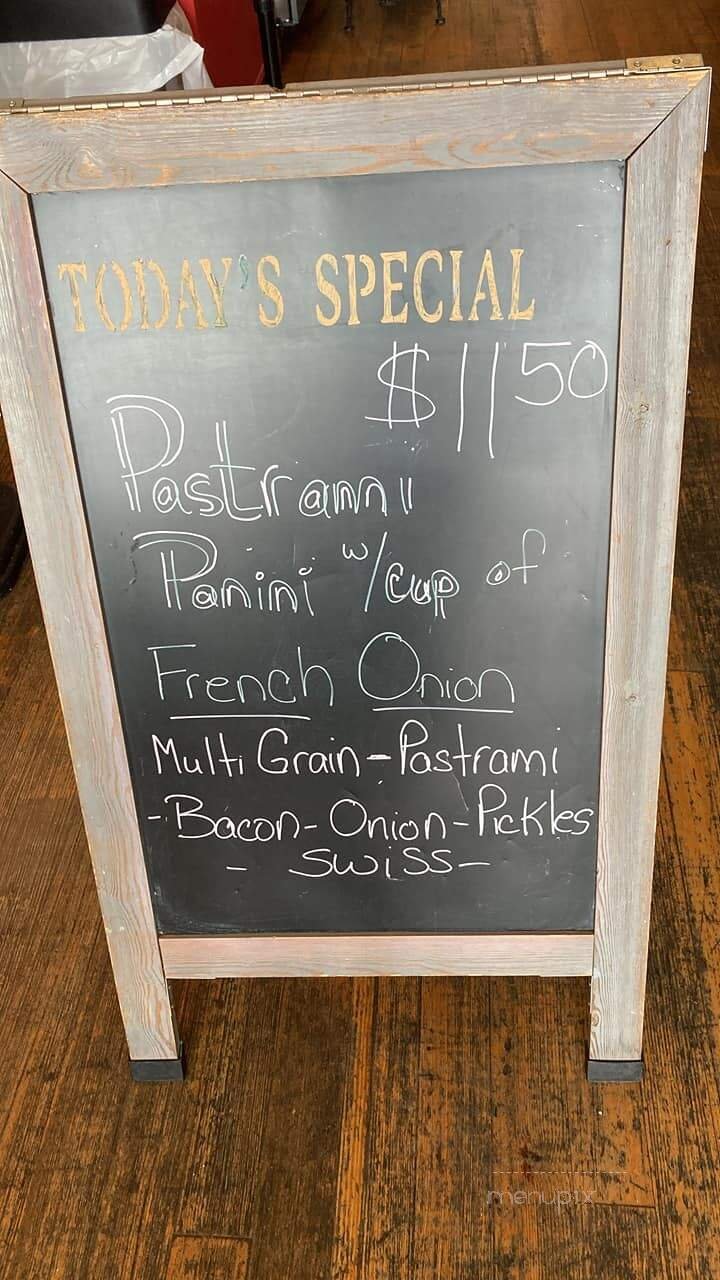 TODAY'S SPECIAL
$11 50
Pastrami
Panini w/cup of
French Onion
Multi Grain - Pastrami
- Bacon - Onion - Pickles
- SWISS -
menupix